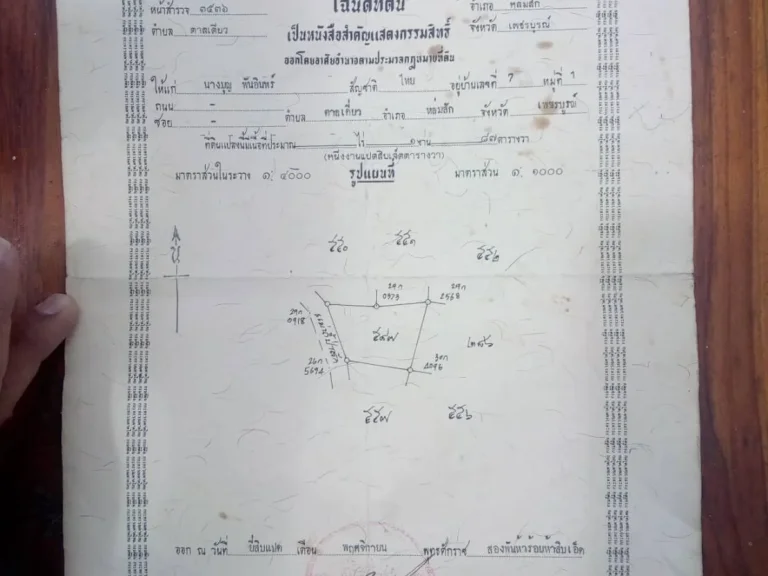 หน้าสำรวจ ๑๕๓๖ โฉนดที่ดิน อำเภอ หล่มสัก
ตำบล ตาลเดียว เป็นหนังสือสำคัญแสดงกรรมสิทธิ์ จังหวัด เพชรบูรณ์
ออกโดยอาศัยอำนาจตามประมวลกฎหมายที่ดิน
ให้แก่ นางบุญ พันอินทร์ สัญชาติ ไทย อยู่บ้านเลขที่ 7 หมู่ที่ 1
ถนน - ตำบล ตาลเดี่ยว อำเภอ หล่มสัก จังหวัด เพชรบูรณ์
ซอย -
ที่ดินแปลงนี้มีเนื้อที่ประมาณ - ไร่ ๑ งาน ๘๗ ตารางวา
(หนึ่งงานแปดสิบเจ็ดตารางวา)
มาตราส่วนในระวาง ๑: ๔๐๐๐ รูปแผนที่ มาตราส่วน ๑: ๑๐๐๐
น
๕๕๐ ๕๕๑ ๕๕๒
29ก 0973
29ก 2568
29ก 0918
แม่น้ำป่าสัก
๕๔๗
๒๘๖
2096
5694
๕๕๗ ๕๕๖
ออก ณ วันที่ ยี่สิบแปด เดือน พฤศจิกายน พุทธศักราช สองพันห้าร้อยห้าสิบเอ็ด